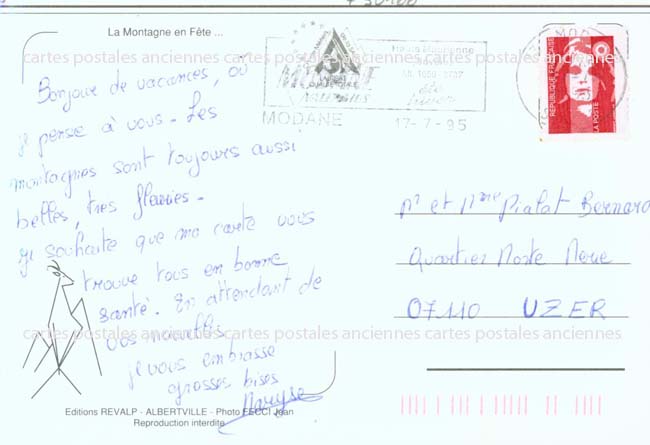 La Montagne en Fête ...
cartes postales anciennes cartes postales anciennes cartes postales anciennes
Bonjour de vacances, où
je pense à vous. Les
montagnes sont toujours aussi
belles, très fleuries.
Je souhaite que ma carte vous
trouve tous en bonne
santé. En attendant de
vos nouvelles
je vous embrasse
grosses bises
Maryse
Editions REVALP - ALBERTVILLE - Photo FECCI Jean
Reproduction interdite
Haute Maurienne
Alt. 1050 - 3737
MODANE
17-7-95
REPUBLIQUE FRANÇAISE
LA POSTE
Mr et Mme Pialat Bernard
Quartier
07110 UZER
cartes postales anciennes cartes postales anciennes cartes postales anciennes